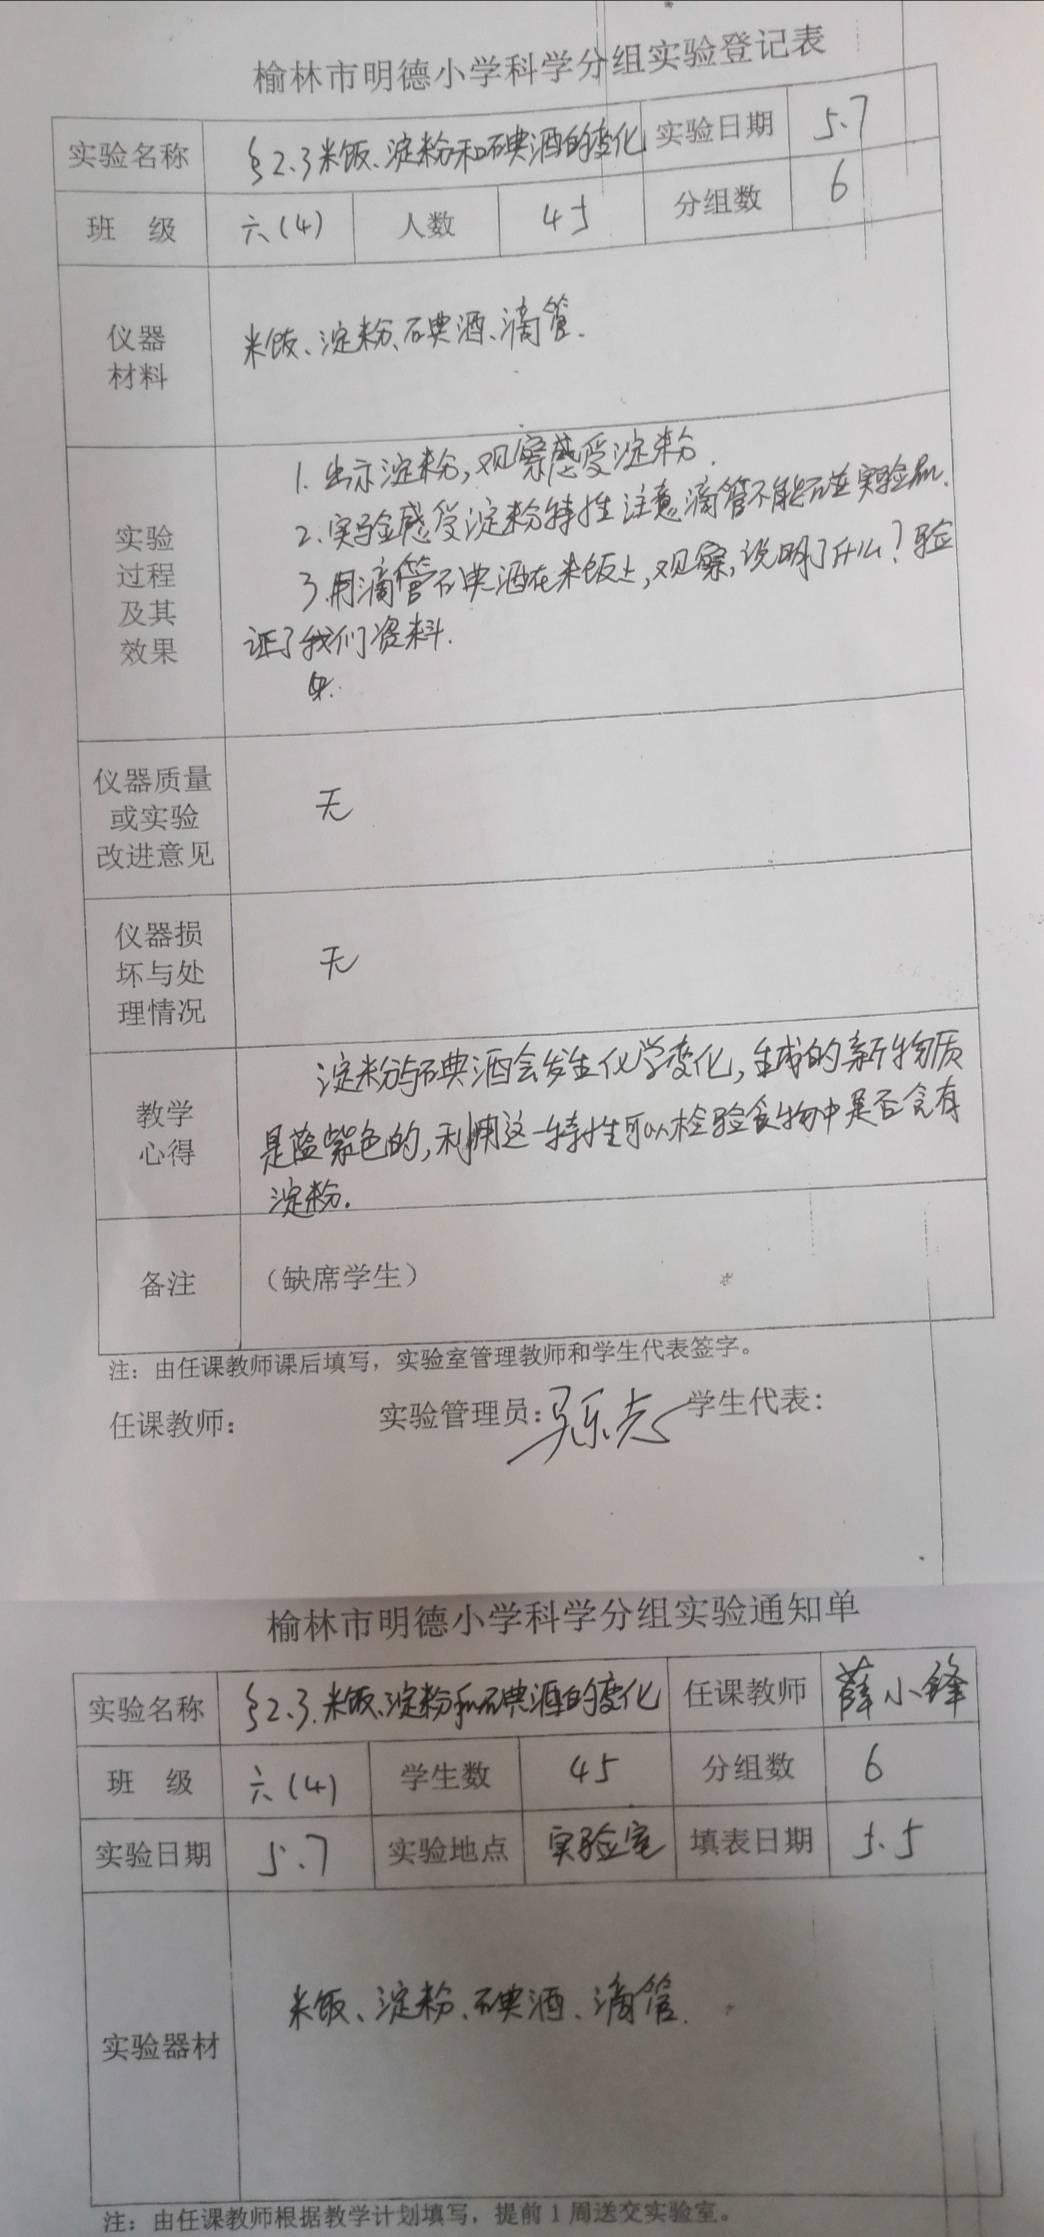 榆林市明德小学科学分组实验登记表
实验名称 §2.3米饭、淀粉和碘酒的变化 实验日期 5.7
班 级 六(4) 人数 45 分组数 6
仪器
材料
米饭、淀粉、碘酒、滴管.
实验
过程
及其
效果
1. 出示淀粉,观察感受淀粉.
2.实验感受淀粉特性 注意滴管不能碰实验品.
3.用滴管碘酒在米饭上,观察,说明了什么?验
证了我们资料.
仪器质量
或实验
改进意见
无
仪器损
坏与处
理情况
无
教学
心得
淀粉与碘酒会发生化学变化,生成的新物质
是蓝紫色的,利用这一特性可以检验食物中是否含有
淀粉.
备注 (缺席学生)
注：由任课教师课后填写，实验室管理教师和学生代表签字。
任课教师： 实验管理员: 学生代表：
榆林市明德小学科学分组实验通知单
实验名称 §2.3.米饭、淀粉和碘酒的变化 任课教师 薛小锋
班 级 六(4) 学生数 45 分组数 6
实验日期 5.7 实验地点 实验室 填表日期 5.5
实验器材 米饭、淀粉、碘酒、滴管.
注：由任课教师根据教学计划填写，提前1周送交实验室。